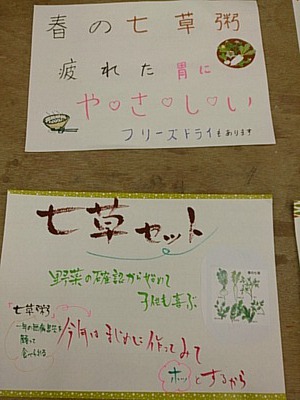 春の七草粥
疲れた胃に
や♡さ♡し♡い
フリーズドライもあります
七草セット
野菜の確認から始めて
子供も喜ぶ
七草粥
一年の無病息災を
願って
食べられる
今年はまじめに作ってみて
ホッとするから